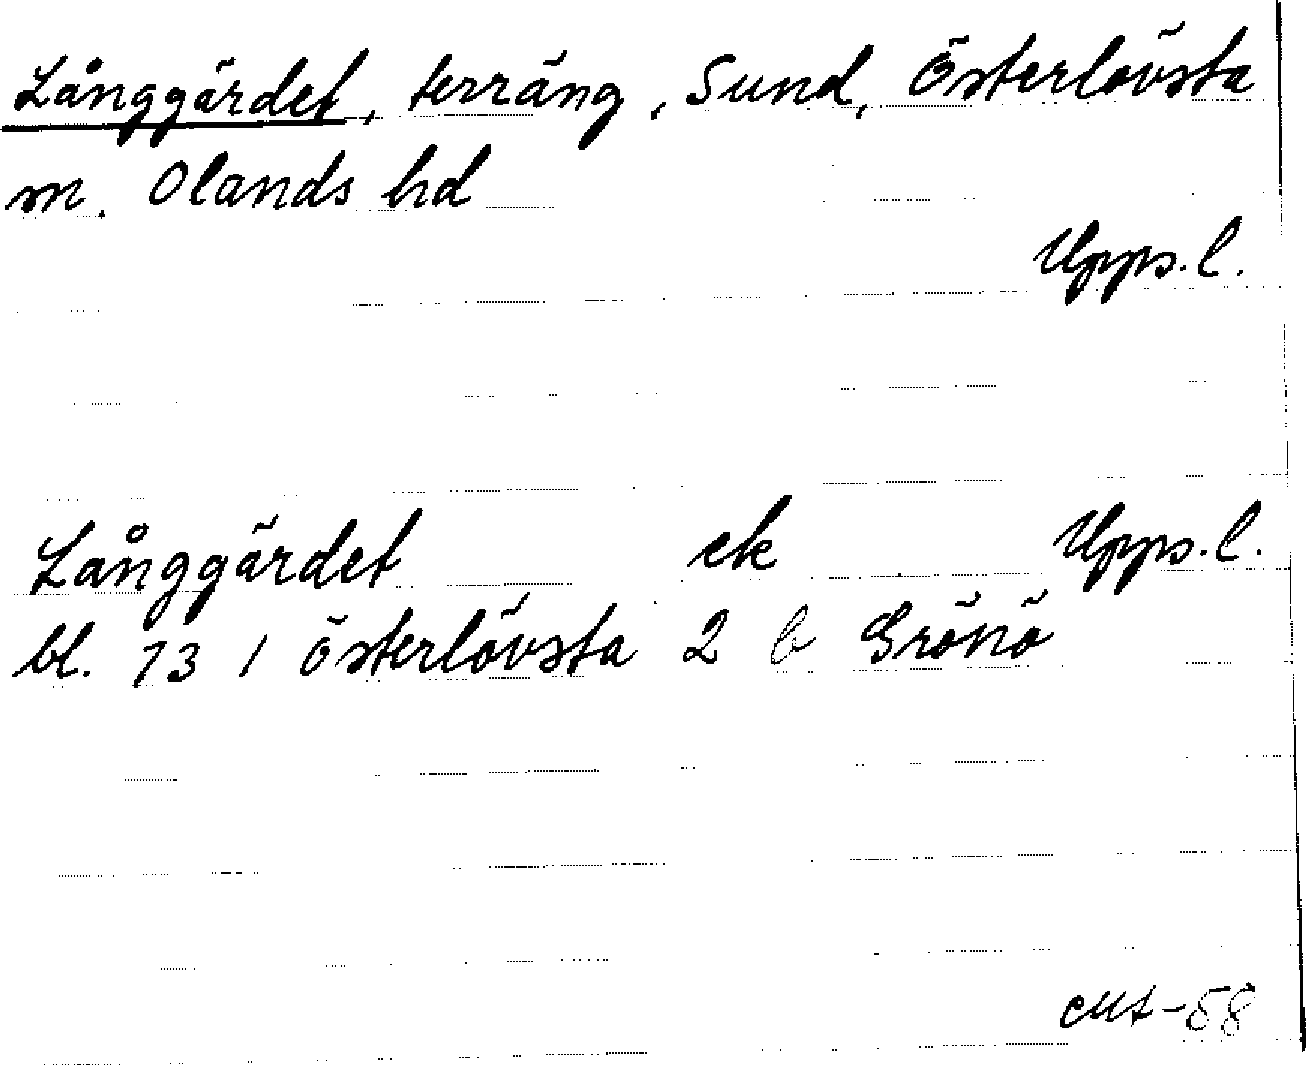 Långgärdet, terräng, Sund, Österlövsta
m. Olands hd
Upps. l.
Långgärdet ek Upps. l.
bl. 73 1 Österlövsta 2 b Grönö
-58